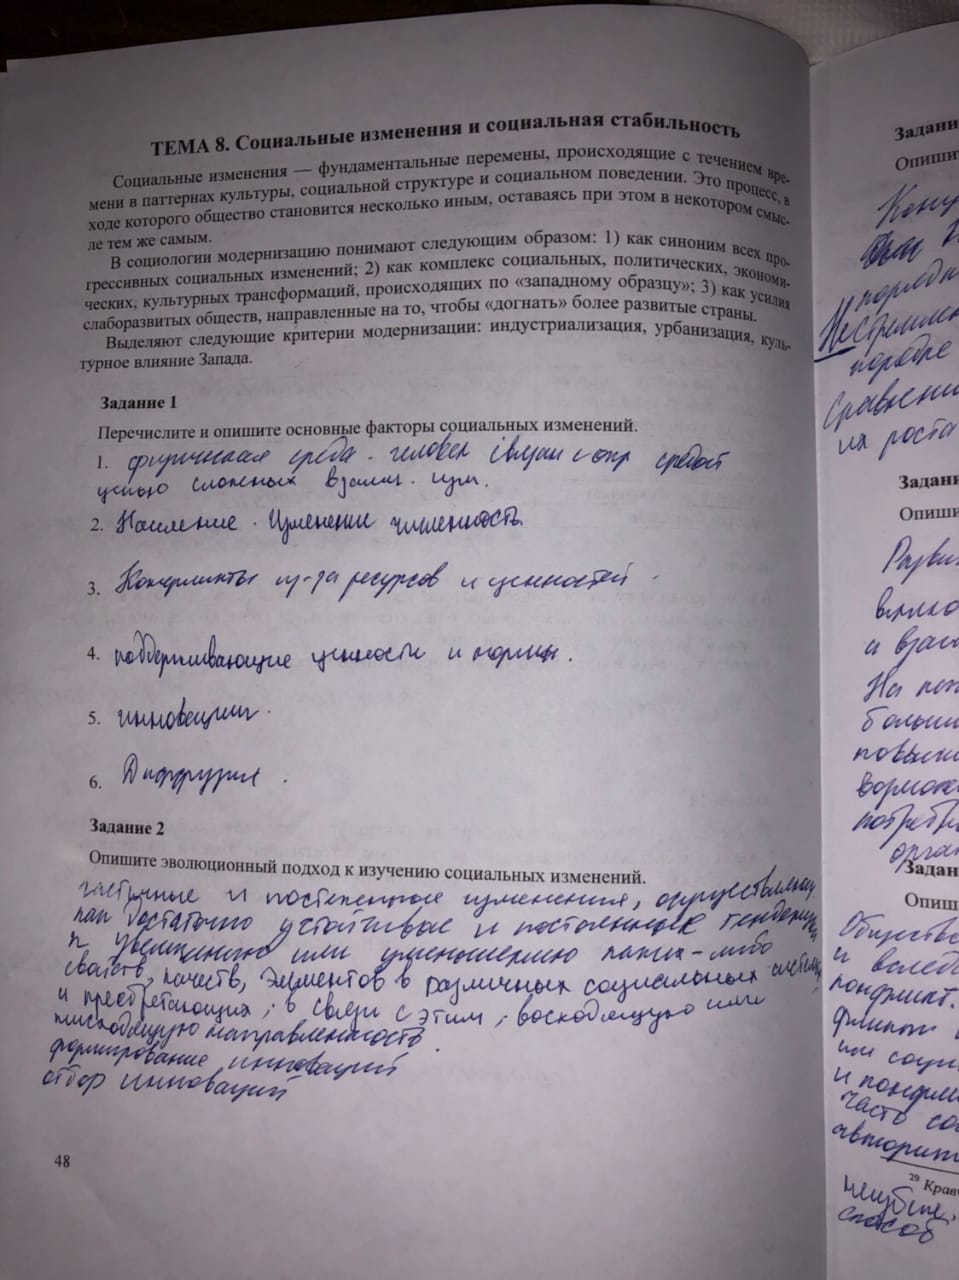 ТЕМА 8. Социальные изменения и социальная стабильность
Социальные изменения — фундаментальные перемены, происходящие с течением вре-
мени в паттернах культуры, социальной структуре и социальном поведении. Это процесс, в
ходе которого общество становится несколько иным, оставаясь при этом в некотором смыс-
ле тем же самым.
В социологии модернизацию понимают следующим образом: 1) как синоним всех про-
грессивных социальных изменений; 2) как комплекс социальных, политических, экономи-
ческих, культурных трансформаций, происходящих по «западному образцу»; 3) как усилия
слаборазвитых обществ, направленные на то, чтобы «догнать» более развитые страны.
Выделяют следующие критерии модернизации: индустриализация, урбанизация, куль-
турное влияние Запада.
Задание 1
Перечислите и опишите основные факторы социальных изменений.
1. физическая среда. человек связан с окр средой
цепью сложных взаим.
2. Население. Изменении численность
3. Конфликты из-за ресурсов и ценностей.
4. поддерживающие ценности и нормы.
5. инновации.
6. Диффузия.
Задание 2
Опишите эволюционный подход к изучению социальных изменений.
частичные и постепенные изменения, осуществляющ
как достаточно устойчивые и постоянные тенденции
к увеличению или уменьшению каких-либо
свойств, качеств, элементов в различных социальных системах
и приобретающих, в связи с этим, восходящую или
нисходящую направленность.
формирование инноваций
отбор инноваций
48
Задани
Опишит
порядк
Нестремлен
порядке
Сравнени
их роста
Задани
Опиши
Разви
и взаи
На
больши
повыш
возможн
потребн
орган
Задан
Опиш
Обществ
и вслед
конфликт.
им соци
и конфли
часто со
авторит
29 Крав
неизбеж.
способ